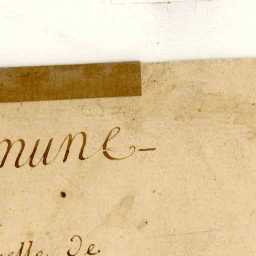 mune-
elle de